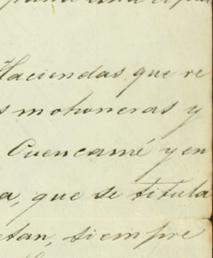 Haciendas que re
s mohoneras y
Cuencamé y en
a, que se titula
etan, siempre